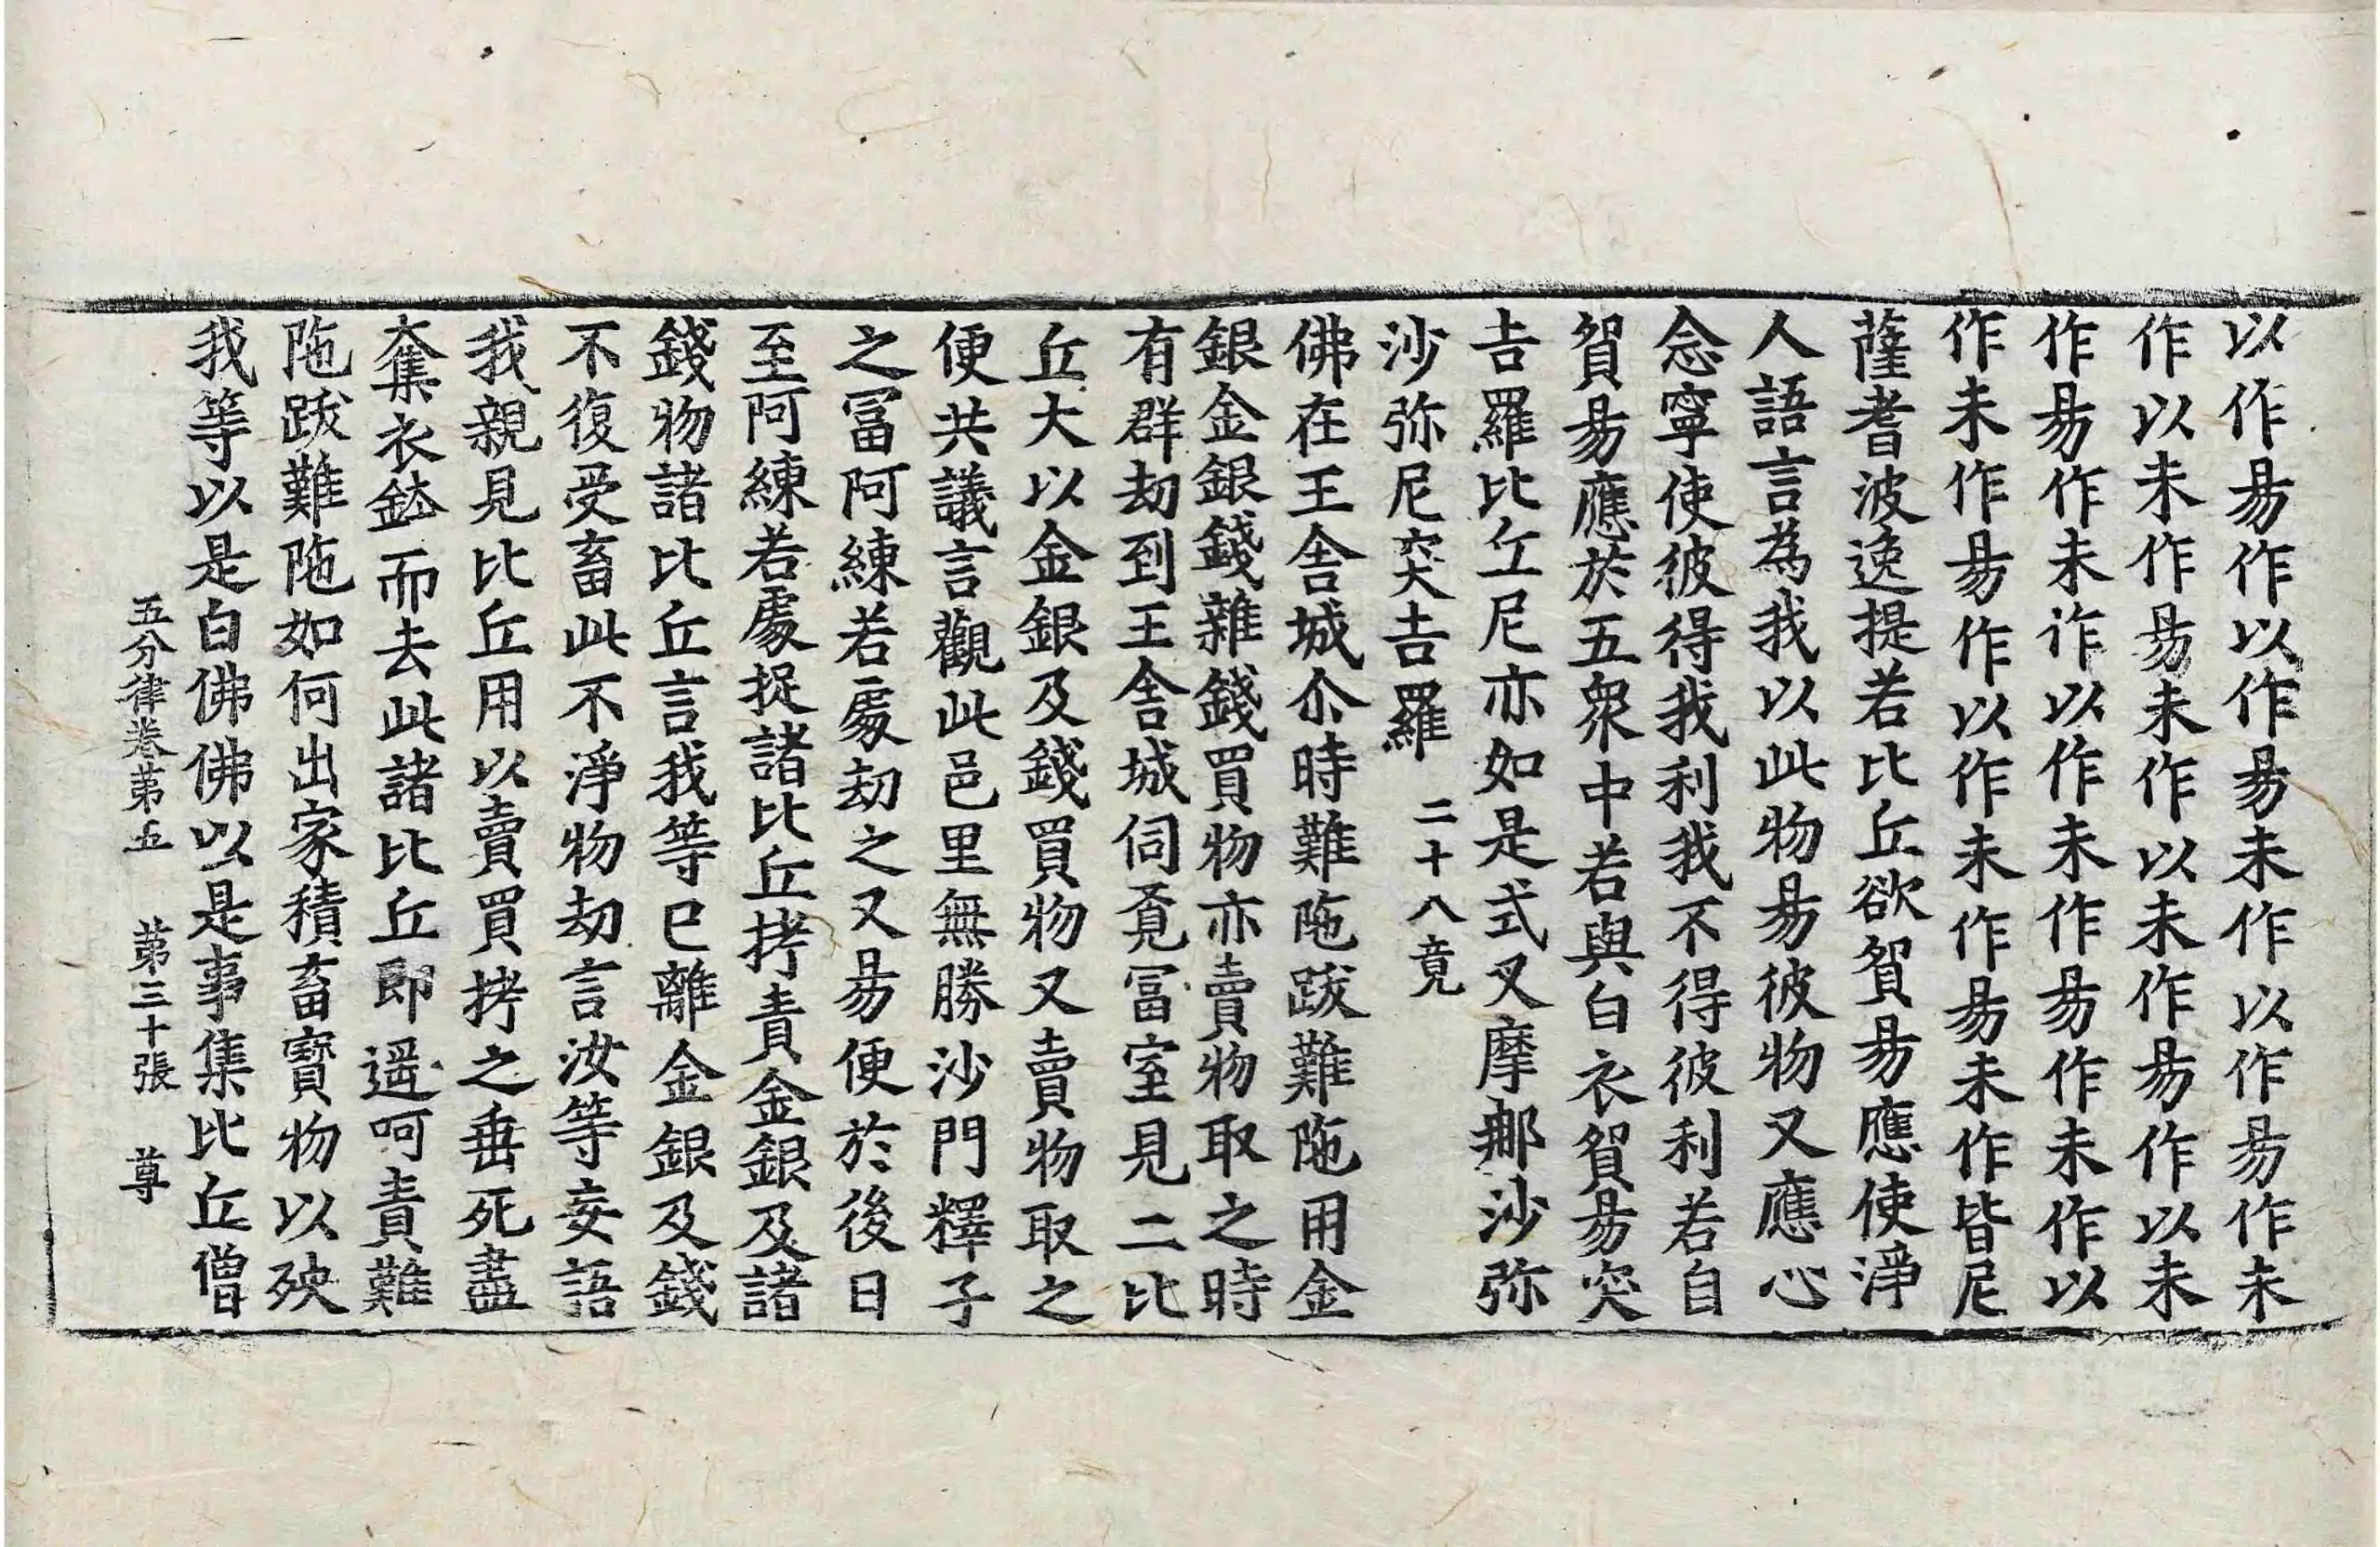 以作易作以作易未作以作易作未
作以未作易未作以未作易作以未
作易作未作以作未作易作未作以
作未作易作以作未作易未作皆尼
薩耆波逸提若比丘欲貿易應使淨
人語言為我以此物易彼物又應心
念寧使彼得我利我不得彼利若自
貿易應於五衆中若與白衣貿易突
吉羅比丘尼亦如是式叉摩那沙弥
沙弥尼突吉羅 二十八竟
佛在王舎城尒時難陁跋難陁用金
銀金銀錢雜錢買物亦賣物取之時
有群劫到王舎城伺覔冨室見二比
丘大以金銀及錢買物又賣物取之
便共議言觀此邑里無勝沙門釋子
之冨阿練若處劫之又易便於後日
至阿練若處捉諸比丘拷責金銀及諸
錢物諸比丘言我等已離金銀及錢
不復受畜此不淨物劫言汝等妄語
我親見比丘用以賣買拷之垂死盡
奪衣鉢而去此諸比丘即遥呵責難
陁跋難陁如何出家積畜寳物以殃
我等以是白佛佛以是事集比丘僧
五分律卷第五 第三十張 尊